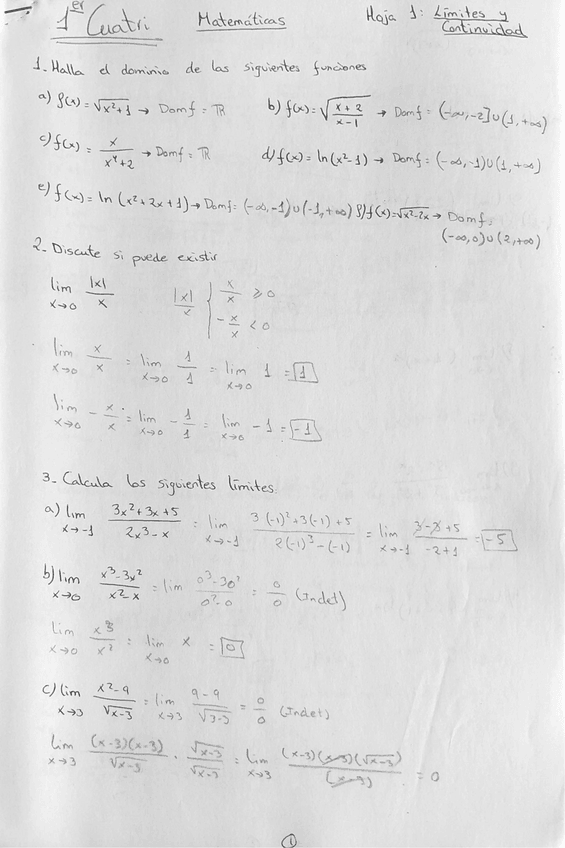 1er Cuatri Matemáticas Hoja 1: Límites y
Continuidad
1- Halla el dominio de las siguientes funciones
a) f(x) = √(x²+1) → Dom f = ℝ b) f(x) = √((x+2)/(x-1)) → Dom f = (-∞,-2]∪(1,+∞)
c) f(x) = x/(x⁴+2) → Dom f = ℝ d) f(x) = ln(x²-1) → Dom f = (-∞,-1)∪(1,+∞)
e) f(x) = ln(x²+2x+1) → Dom f = (-∞,-1)∪(-1,+∞) f) f(x) = √(x²-2x) → Dom f =
(-∞,0)∪(2,+∞)
2- Discute si puede existir
lim x→0 |x|/x |x|/x { x/x ≥ 0
-x/x < 0
lim x→0 x/x = lim x→0 1/1 = lim x→0 1 = 1
lim x→0 - x/x = lim x→0 - 1/1 = lim x→0 -1 = -1
3- Calcula los siguientes límites:
a) lim x→-1 (3x²+3x+5)/(2x³-x) = lim x→-1 (3(-1)²+3(-1)+5)/(2(-1)³-(-1)) = lim x→-1 (3-3+5)/(-2+1) = -5
b) lim x→0 (x³-3x²)/(x²-x) = lim (0³-30²)/(0²-0) = 0/0 (Indet)
lim x→0 x³/x² = lim x→0 x = 0
c) lim x→3 (x²-9)/√(x-3) = lim x→3 (9-9)/√(3-3) = 0/0 (Indet)
lim x→3 (x-3)(x-3)/√(x-3) · √(x-3)/√(x-3) = lim x→3 (x-3)(x-3)(√(x-3))/(x-3) = 0
1